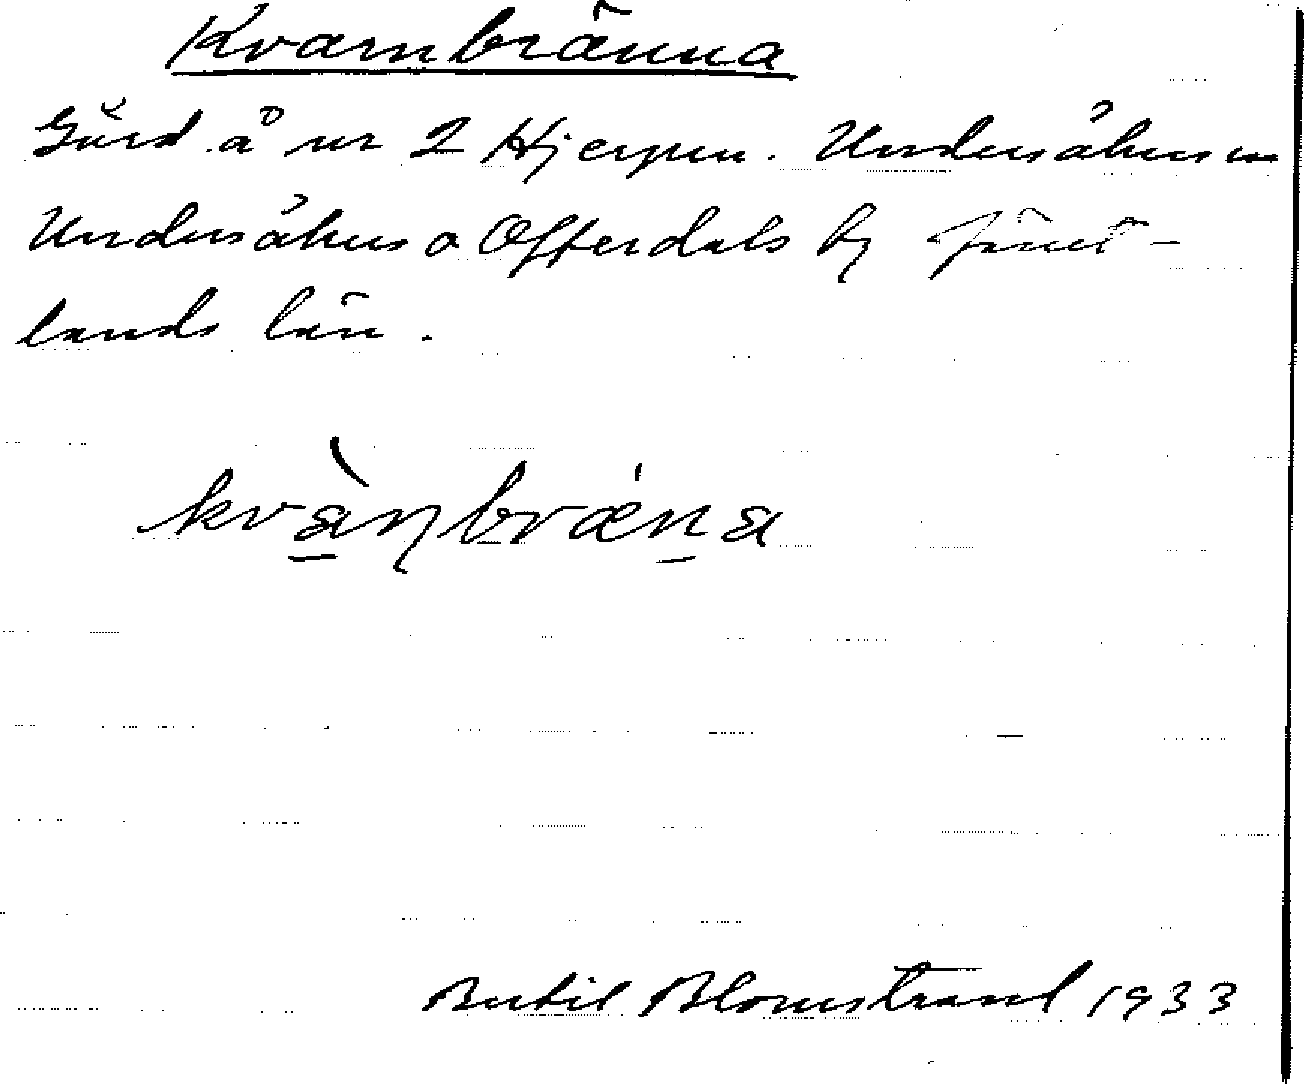 Kvarnbränna
Gård å nr 2 Hjerpen. Undersåkers sn
Undersåkers o Offerdals tg Jämt-
lands län.
kvànbræ̀na
Bertil Blomstrand 1933